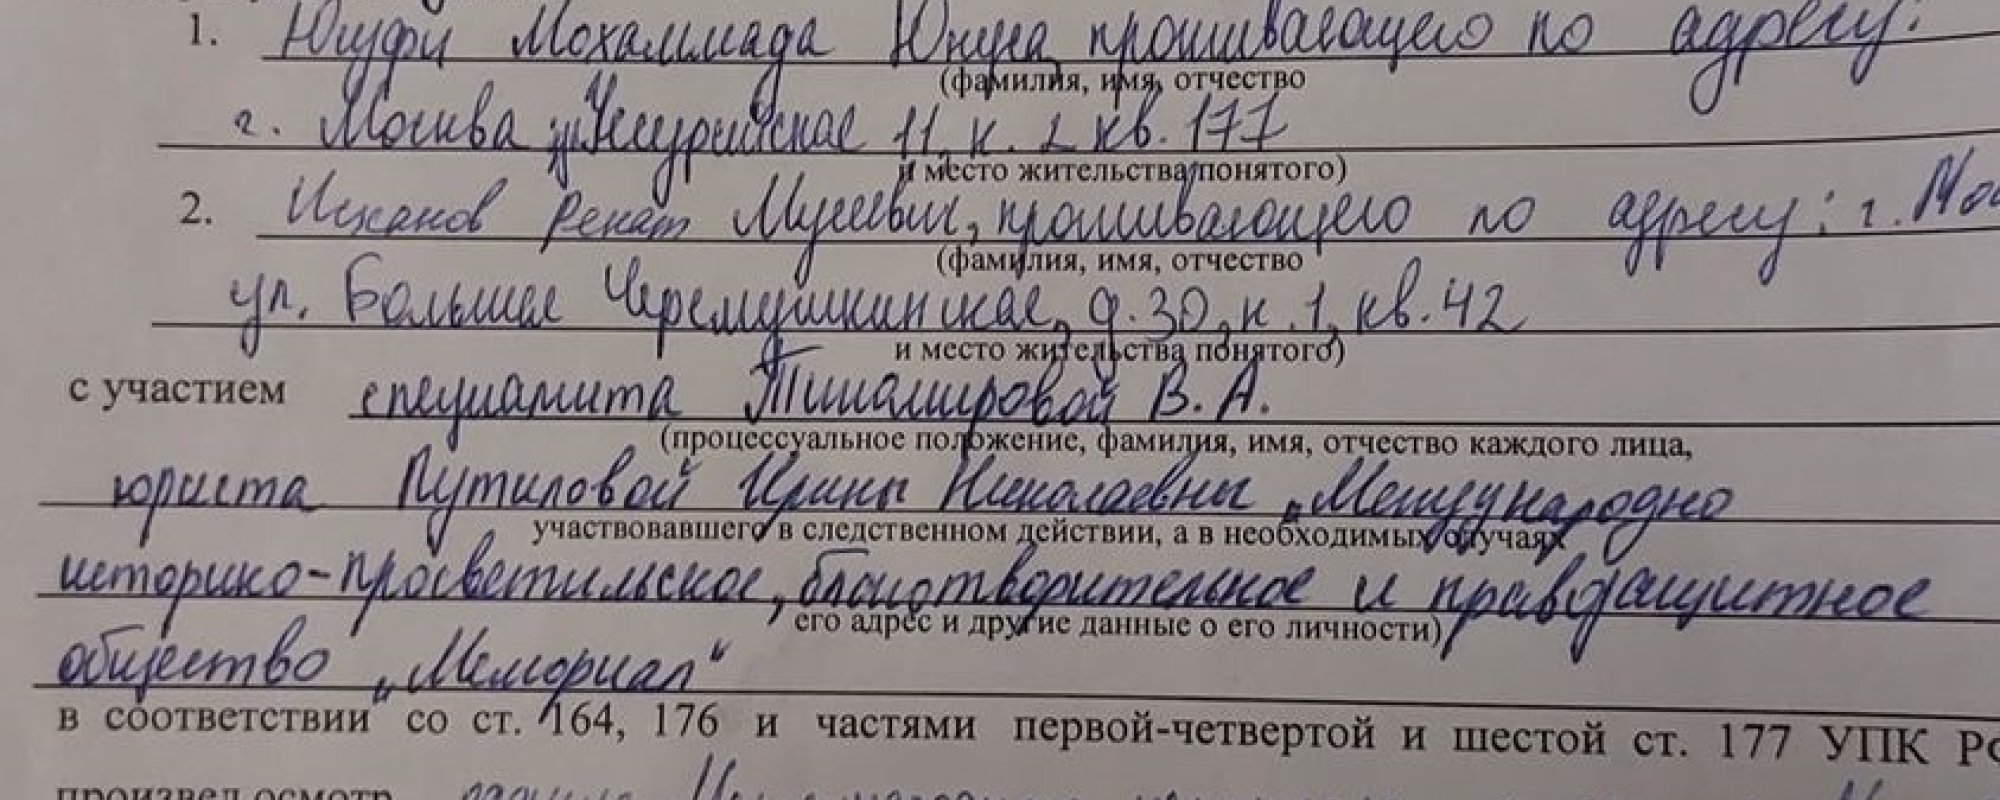 1. Юсуфи Мохаммада Юнуса проживающего по адресу:
(фамилия, имя, отчество
г. Москва ул. Уссурийская 11, к. 2 кв. 177
и место жительства понятого)
2. Исханов Ренат Мусеевич, проживающего по адресу: г. Мос
(фамилия, имя, отчество
ул. Большая Черемушкинская, д. 30, к. 1, кв. 42
и место жительства понятого)
с участием специалиста Тишамировой В. А.
(процессуальное положение, фамилия, имя, отчество каждого лица,
юриста Путиловой Ирины Николаевны „Международно
участвовавшего в следственном действии, а в необходимых случаях
историко-просветильское, благотворительное и правозащитное
его адрес и другие данные о его личности)
общество „Мемориал“
в соответствии со ст. 164, 176 и частями первой-четвертой и шестой ст. 177 УПК Рос
произвел осмотр